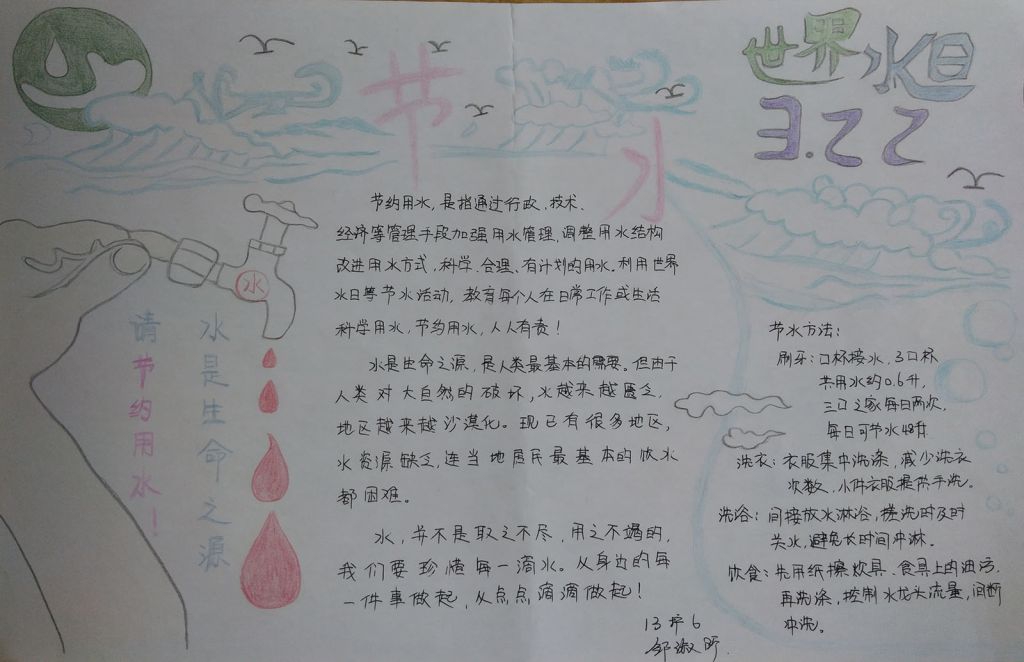 世界水日
3.22
节水
节约用水，是指通过行政、技术、
经济等管理手段加强用水管理，调整用水结构
改进用水方式，科学、合理、有计划的用水。利用世界
水日等节水活动，教育每个人在日常工作或生活
科学用水，节约用水，人人有责！
水是生命之源，是人类最基本的需要。但由于
人类对大自然的破坏，水越来越匮乏，
地区越来越沙漠化。现已有很多地区，
水资源缺乏，连当地居民最基本的饮水
都困难。
水，并不是取之不尽，用之不竭的，
我们要珍惜每一滴水。从身边的每
一件事做起，从点点滴滴做起！
13护6
邹淑
水
请节约用水！
水是生命之源
节水方法：
刷牙：口杯接水，3口杯
共用水约0.6升，
三口之家每日两次，
每日可节水48升
洗衣：衣服集中洗涤，减少洗衣
次数，小件衣服提倡手洗。
洗浴：间接放水淋浴，搓洗时及时
关水，避免长时间冲淋。
饮食：先用纸擦炊具、食具上的油污，
再洗涤，控制水龙头流量，间断
冲洗。